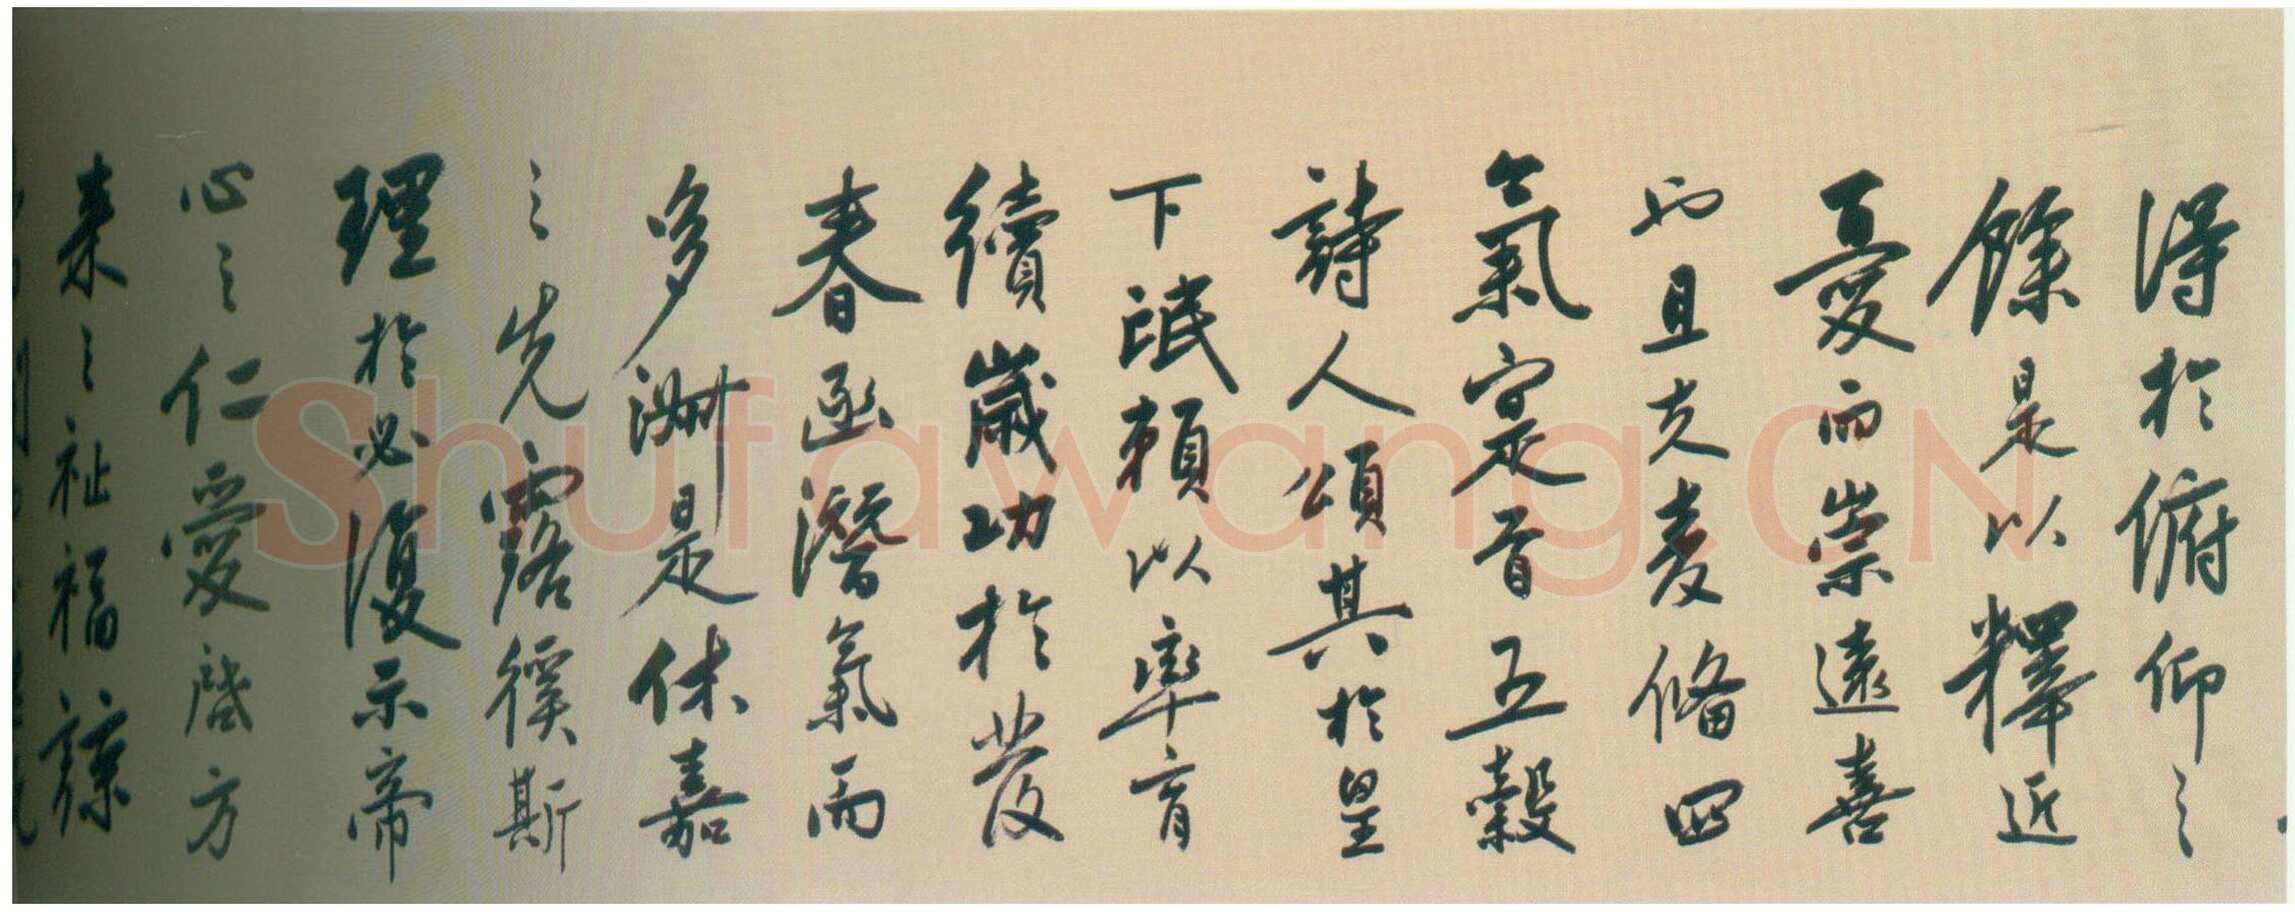 得於俯仰之
餘是以釋近
憂而崇遠喜
也且夫麦備四
氣寔首五穀
詩人頌其於皇
下民賴以率育
續歲功於發
春函潛氣而
多
是休嘉
之先露徯斯
理於必復示帝
心之仁愛啓方
來之祉福諒
Shufawang.CN